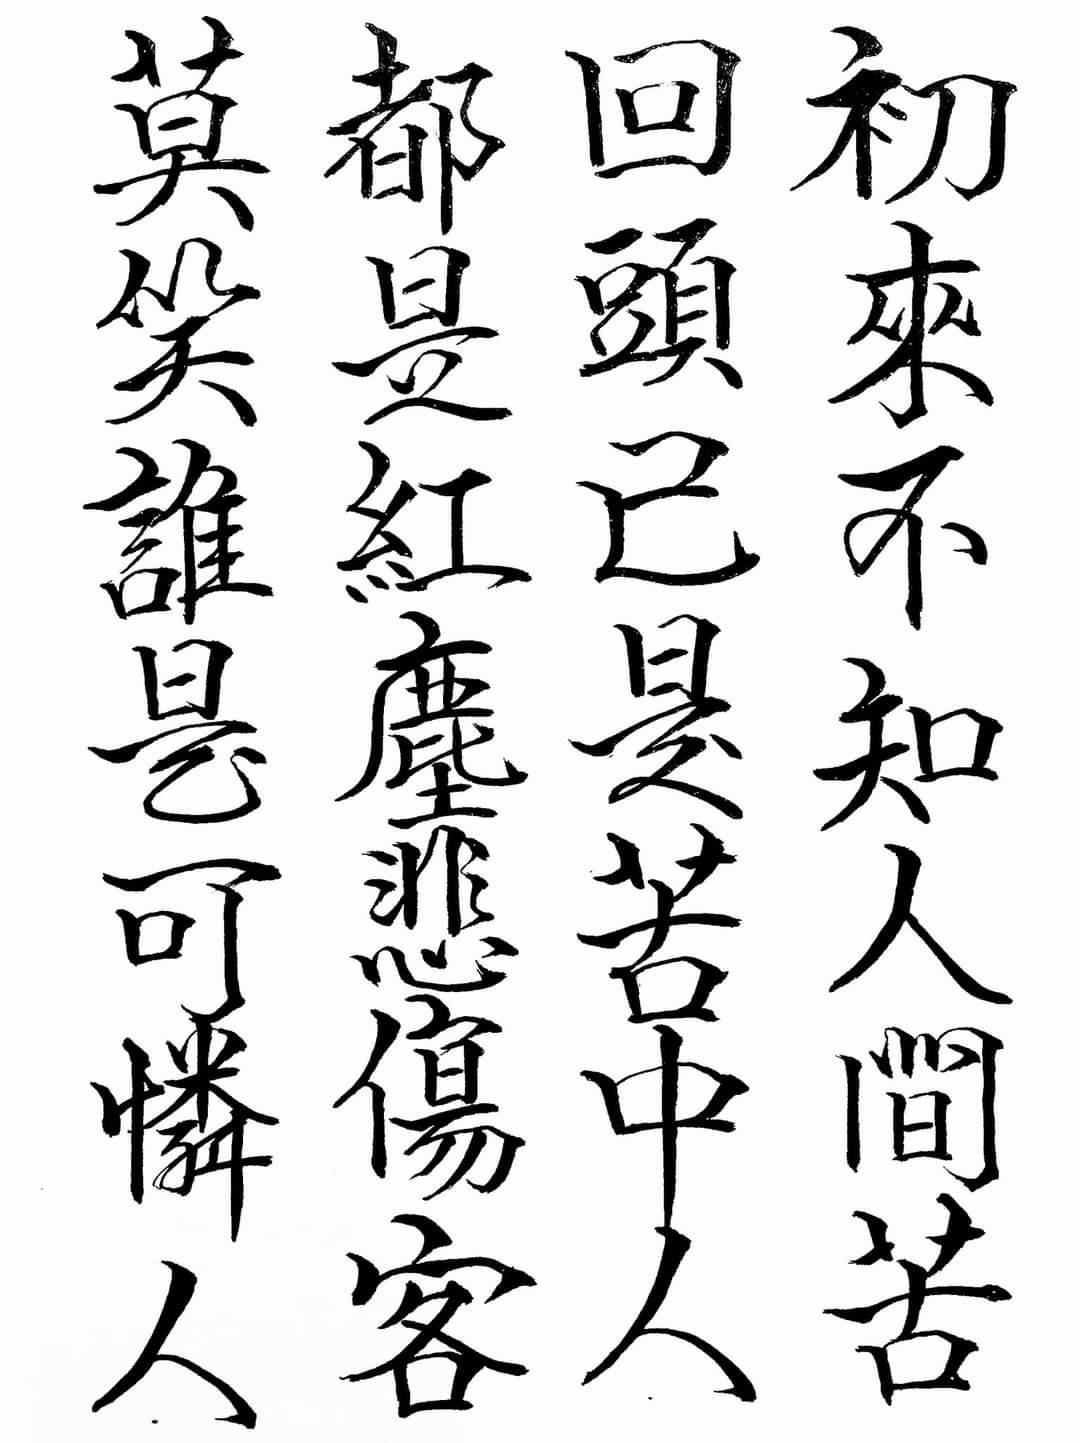 初來不知人間苦
回頭已是苦中人
都是紅塵悲傷客
莫笑誰是可憐人